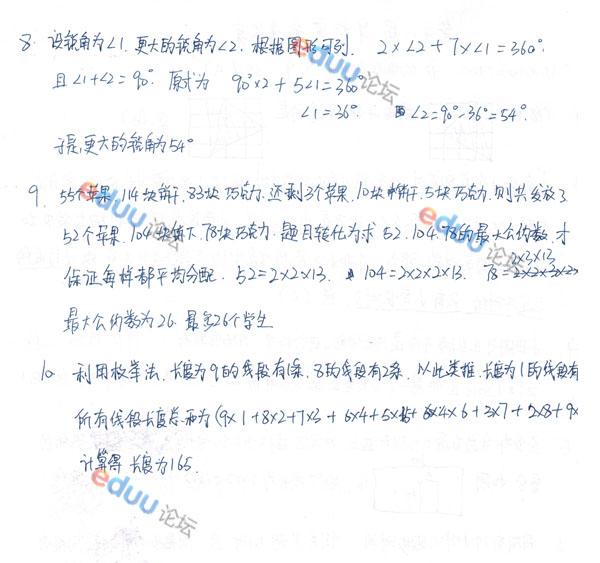 8. 设锐角为∠1, 更大的锐角为∠2, 根据图形可列. 2×∠2+7×∠1=360°.
且∠1+∠2=90°. 原式为 90°×2+5∠1=360°
∠1=36°. ∠2=90°-36°=54°.
于是,更大的锐角为54°
9. 55个苹果, 114块饼干, 83块巧克力, 还剩3个苹果, 10块饼干, 5块巧克力. 则共发放了
52个苹果, 104块饼干, 78块巧克力, 题目转化为求52, 104, 78的最大公约数, 才
保证每样都平均分配. 52=2×2×13. 104=2×2×2×13. 78=2×3×13
最大公约数为26. 最多26个学生
10. 利用枚举法, 长度为9的线段有1条, 8的线段有2条, 以此类推, 长度为1的线段有
所有线段长度总和为(9×1+8×2+7×3+6×4+5×5+4×6+3×7+2×8+9×
计算得 长度为165.
eduu论坛
eduu论坛
eduu论坛
eduu论坛